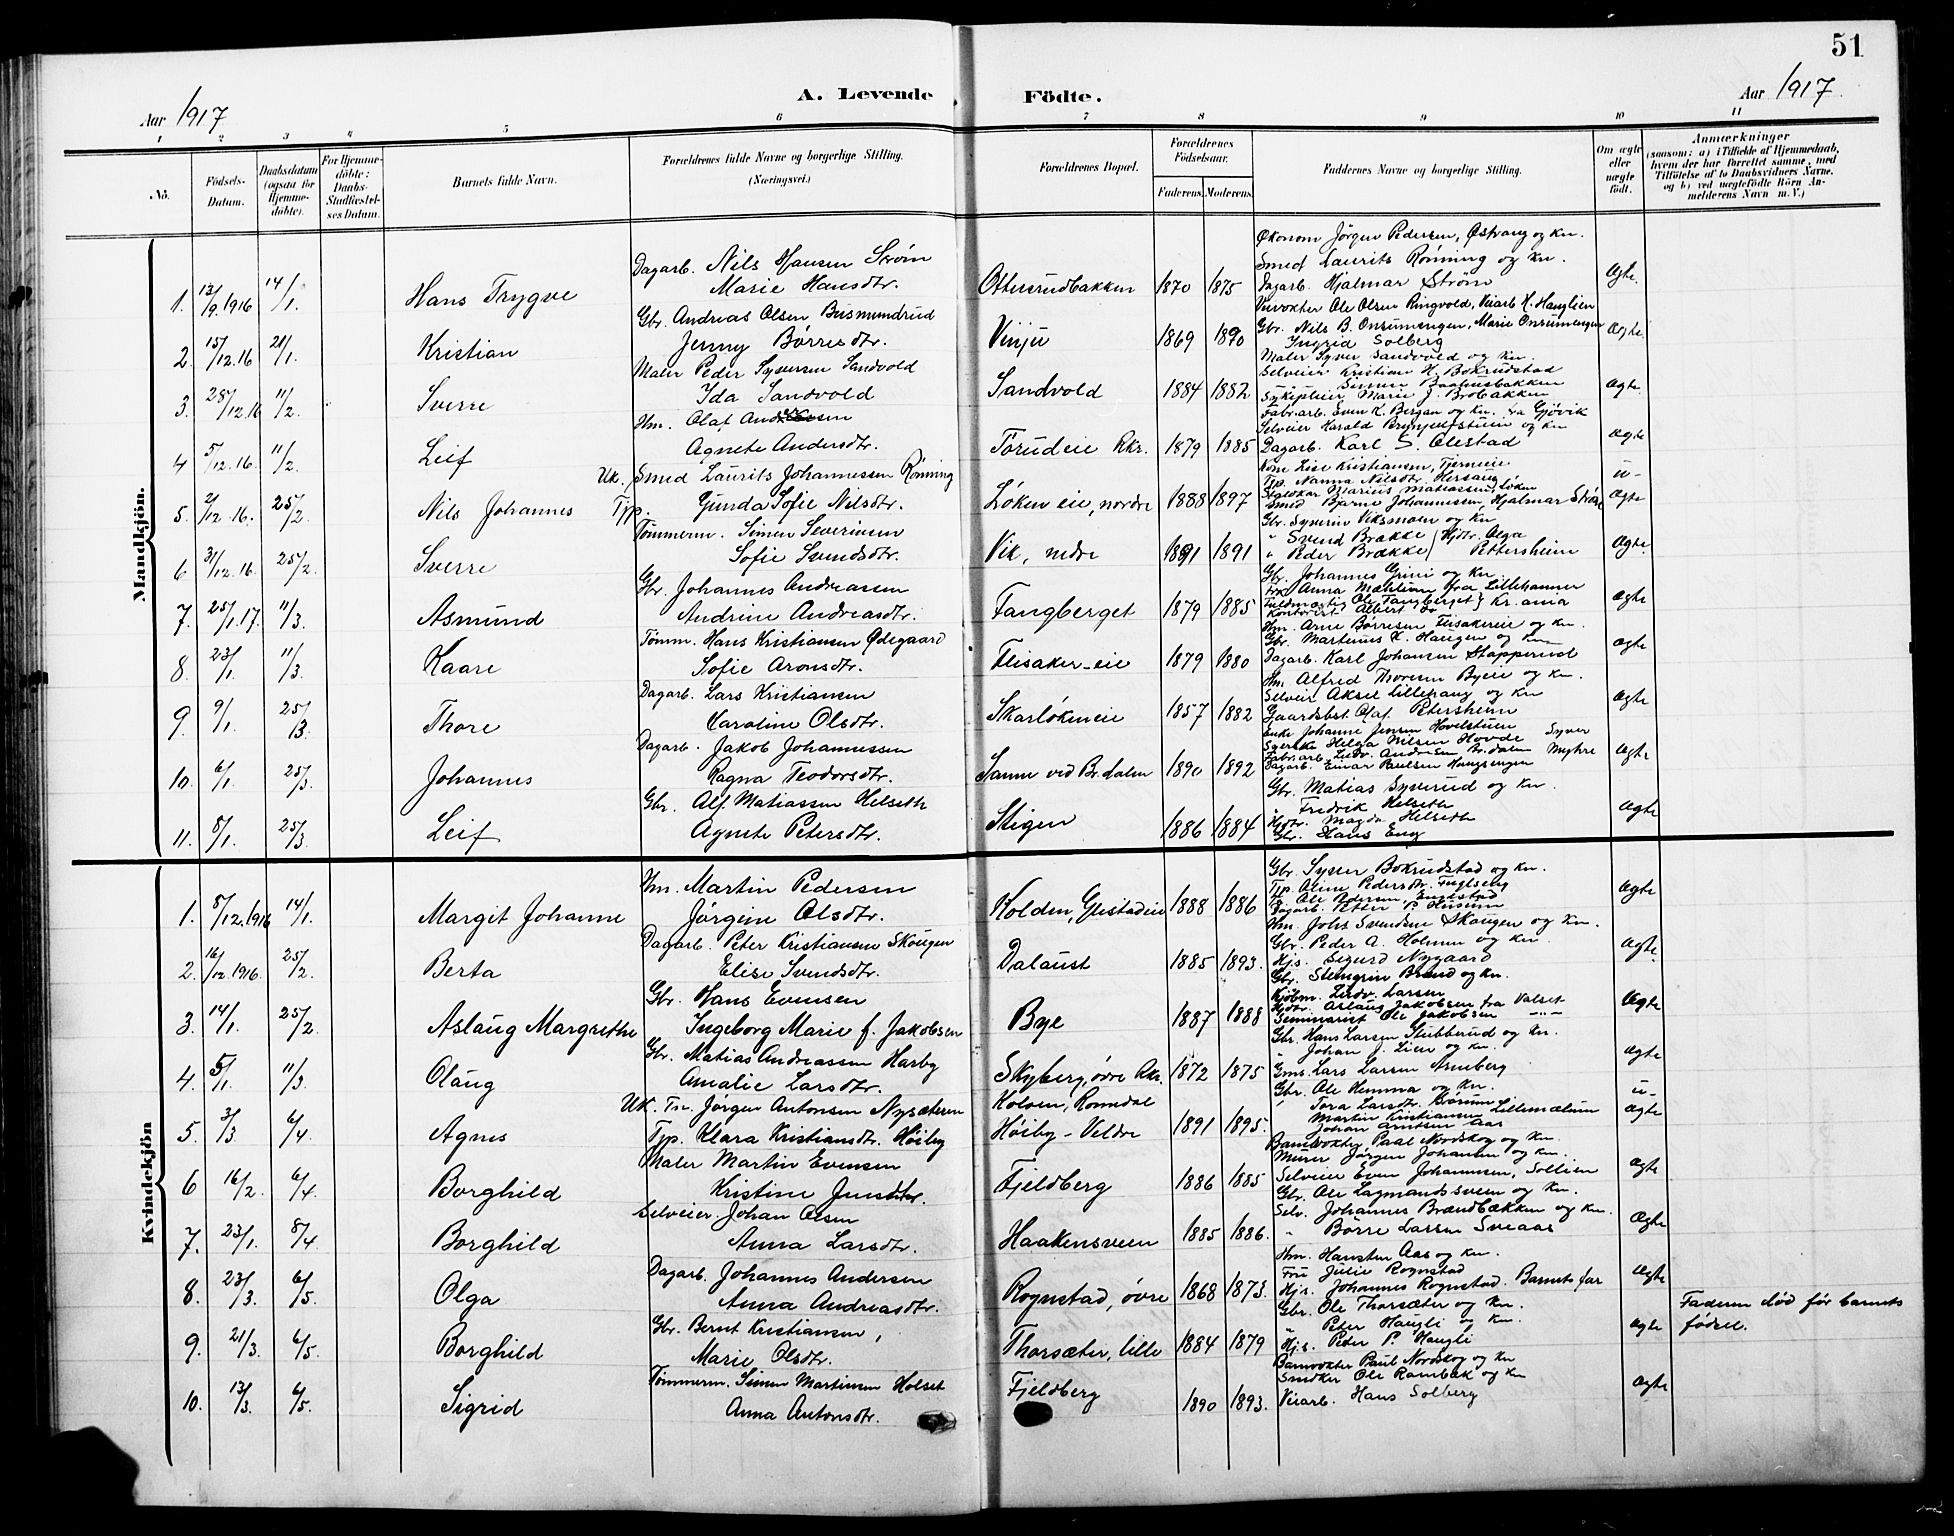 51
A. Levende Födte.
Aar 1917
Aar 1917
1 2 3 4 5 6 7 8 9 10 11
No.
Födsels-Datum.
Daabsdatum (ogsaa for Hjemmedöbte).
For Hjemmedöbte: Daabs-Stadfæstelses Datum.
Barnets fulde Navn.
Forældrenes fulde Navne og borgerlige Stilling.
(Næringsvei.)
Forældrenes Bopæl.
Forældrenes Födselsaar.
Faderens. Moderens.
Faddernes Navne og borgerlige Stilling.
Om ægte eller uægte födt.
Anmærkninger
(saasom: a) i Tilfælde af Hjemmedaab, hvem der har forrettet samme, med Tilföielse af to Daabsvidners Navne. og b) ved uægtefödte Börn Anmelderens Navn m. V.)
Mandkjön.
1. 13/9.1916 14/1. Hans Trygve Dagarb. Nils Hansen Strøm Marie Hansdtr. Ottersrudbakken 1870 1875 Økonom Jørgen Pedersen, Østvang og kn. Smed Laurits Rønning og kn. Dagarb. Hjalmar Strøm Ægte.
2. 15/12.16 21/1. Kristian Gbr. Andreas Olsen Busmundrud Jenny Børresdtr. Vinju 1869 1890 Veivokter Ole Olsen Ringvold, Veiarb. H. Hauglien Gbr. Nils B. Onsumengen, Marie Onsumengen Ingrid Solberg Ægte.
3. 28/12.16 11/2. Sverre Maler Peder Syversen Sandvold Ida Sandvold Sandvold 1884 1882 Maler Syver Sandvold og kn. Selveier Kristian H. Bokrudstad Simen Sykepleier Marie J. Brobakken Ægte.
4 5/12.16. 11/2. Leif Hm. Olaf Andersen Agnete Andersdtr. Torud eie Rkr. 1879 1885 Fabr.arb. Even K. Bergan og kn. fra Gjøvik Selveier Harald Brynjulfstuen og kn Dagarb. Karl S. Olestad Ægte
5. 2/12.16. 25/2. Nils Johannes Uk. Smed Laurits Johannessen Rønning Tjp. Gunda Sofie Nilsdtr. Løken eie, nordre 1888 1897 Kone Lise Kristiansen, Tjerneie Tjp. Nanna Nilsdtr. Hersaug Marius Matiassen, Løken Smed Bjarne Johannessen, Hjalmar Strøm u- Ægte
6 31/12.16. 25/2. Sverre Tømmerm. Simen Severinsen Sofie Svendsdtr. Vik, nedre 1891 1891 Gbr. Syverin Viksmoen og kn. " Svend Brække " Peder Brække Hjdtr. Olga Pettersheim Ægte.
7. 25/1.17. 11/3. Asmund Gbr. Johannes Andreassen Andrine Andreasdtr. Fangberget 1879 1885 Gbr. Johannes Grini og kn. Frk Anna Mæhlum fra Lillehammer Fuldmægtig Ole Fangberget Kontorist Albert Do Kr.ania Ægte
8. 23/1. 11/3. Kaare Tømm. Hans Kristiansen Ødegaard Sofie Aronsdtr. Flisaker-eie 1879 1880 Hm. Arne Børresen Flisakereie og kn. Gbr. Martinus K. Haugen og kn Dagarb. Karl Johansen Stapperud Ægte
9. 9/1. 25/3. Thore Dagarb. Lars Kristiansen Karoline Olsdtr. Skarløkeneie 1857 1882 Hm. Alfred Thoresen Byeie og kn. Selveir Aksel Lillehaug og kn Gaardsbst. Olaf Petersheim Ægte
10. 6/1. 25/3. Johannes Dagarb. Jakob Johannessen Ragna Teodorsdtr. Sanne ved Br.dalen 1890 1892 Enke Johanne Jensen Hovelstuen Syerske Helga Nilsen Hovde Syver Fabr.arb. Ludv. Andersen Br.dalen Myhre Dagarb. Einar Paulsen Haugsengen Ægte
11. 8/1. 25/3. Leif Gbr. Alf Matiassen Helseth Agnete Petersdtr. Stigen 1886 1884 Gbr. Matias Syverud og kn. Fredrik Helseth Hjdtr. Magda Helseth Gbr. Hans Eng Ægte
Kvindekjön
1. 8/12.1916 14/1. Margit Johanne Hm. Martin Pedersen Jørgine Olsdtr. Kolden, Glestadeie 1888 1886 Gbr. Syver Bokrudstad og kn. Tjp. Oline Pedersdtr. Fuglseng Ole Pedersen Engstad Dagarb. Petter P. Ægte
2. 16/12.1916. 25/2. Berta Dagarb. Peter Kristiansen Skougen Elise Svendsdtr. Dalaust 1885 1893. Hm. Johs Svendsen Skougen og kn. Gbr. Peder A. Holmen og kn. Hjs. Sigurd Nygaard Ægte.
3. 14/1. 25/2. Aslaug Margrethe Gbr. Hans Evensen Ingeborg Marie f. Jakobsen Bye 1887 1888 Gbr. Stengrim Brænd og kn. Kjøbm. Ludv. Larsen Hjdtr. Aslaug Jakobsen fra Valset Seminarist Ole Jakobsen -"- Ægte
4. 5/1. 11/3. Olaug Gbr. Matias Andreassen Harby Amalie Larsdtr. Skyberg, øvre Rkr. 1872 1875 Gbr. Hans Larsen Stubberud og kn. " Johan J. Lien og kn. Gms. Lars Larsen Arneberg Ægte
5. 3/3. 6/4. Agnes Uk. Tn. Jørgen Antonsen Nysæteren Tjp. Klara Kristiansdtr. Høiby Kolsen, Romedal Høiby-Veldre 1891 1895. Gbr. Ole Hemma og kn. Tora Larsdtr. Børsum Martin Kristiansen Lillemælum Johan Arntsen Aas u- Ægte
6 16/2. 6/4. Borghild Maler Martin Evensen Kristine Jensdtr. Fjeldberg 1886 1885 Banevokter Paal Nordskog og kn. Murer Jørgen Johansen og kn. Selveier Even Johannesen, Sollien Ægte
7. 23/1. 8/4. Borghild Selveier. Johan Olsen Anna Larsdtr. Haakensveen 1885 1886. Gbr. Ole Lagmandssveen og kn. Selv. Johannes Brændbækken og kn. " Børre Larsen Sveaas Ægte
8. 23/3. 6/5. Olga Dagarb. Johannes Andersen Anna Andreasdtr. Rognstad, øvre 1868 1873. Hm. Hansten Aas og kn. Fru Julie Rognstad Hjs. Johannes Rognstad. Barnets far Ægte
9. 21/3. 6/5. Borghild Gbr. Bernt Kristiansen, Marie Olsdtr. Thorsæter, lille 1884 1879 Gbr. Ole Thorsæter og kn. " Peter Haugli og kn. Hjs. Peder P. Haugli Ægte Faderen død før barnets fødsel.
10. 13/3. 6/5. Sigrid Tømmerm. Simen Martinsen Holset Anna Antonsdtr. Fjeldberg 1890 1893. Banevokter Paul Nordskog og kn Snedker Ole Rambæk og kn Veiarb. Hans Solberg Ægte